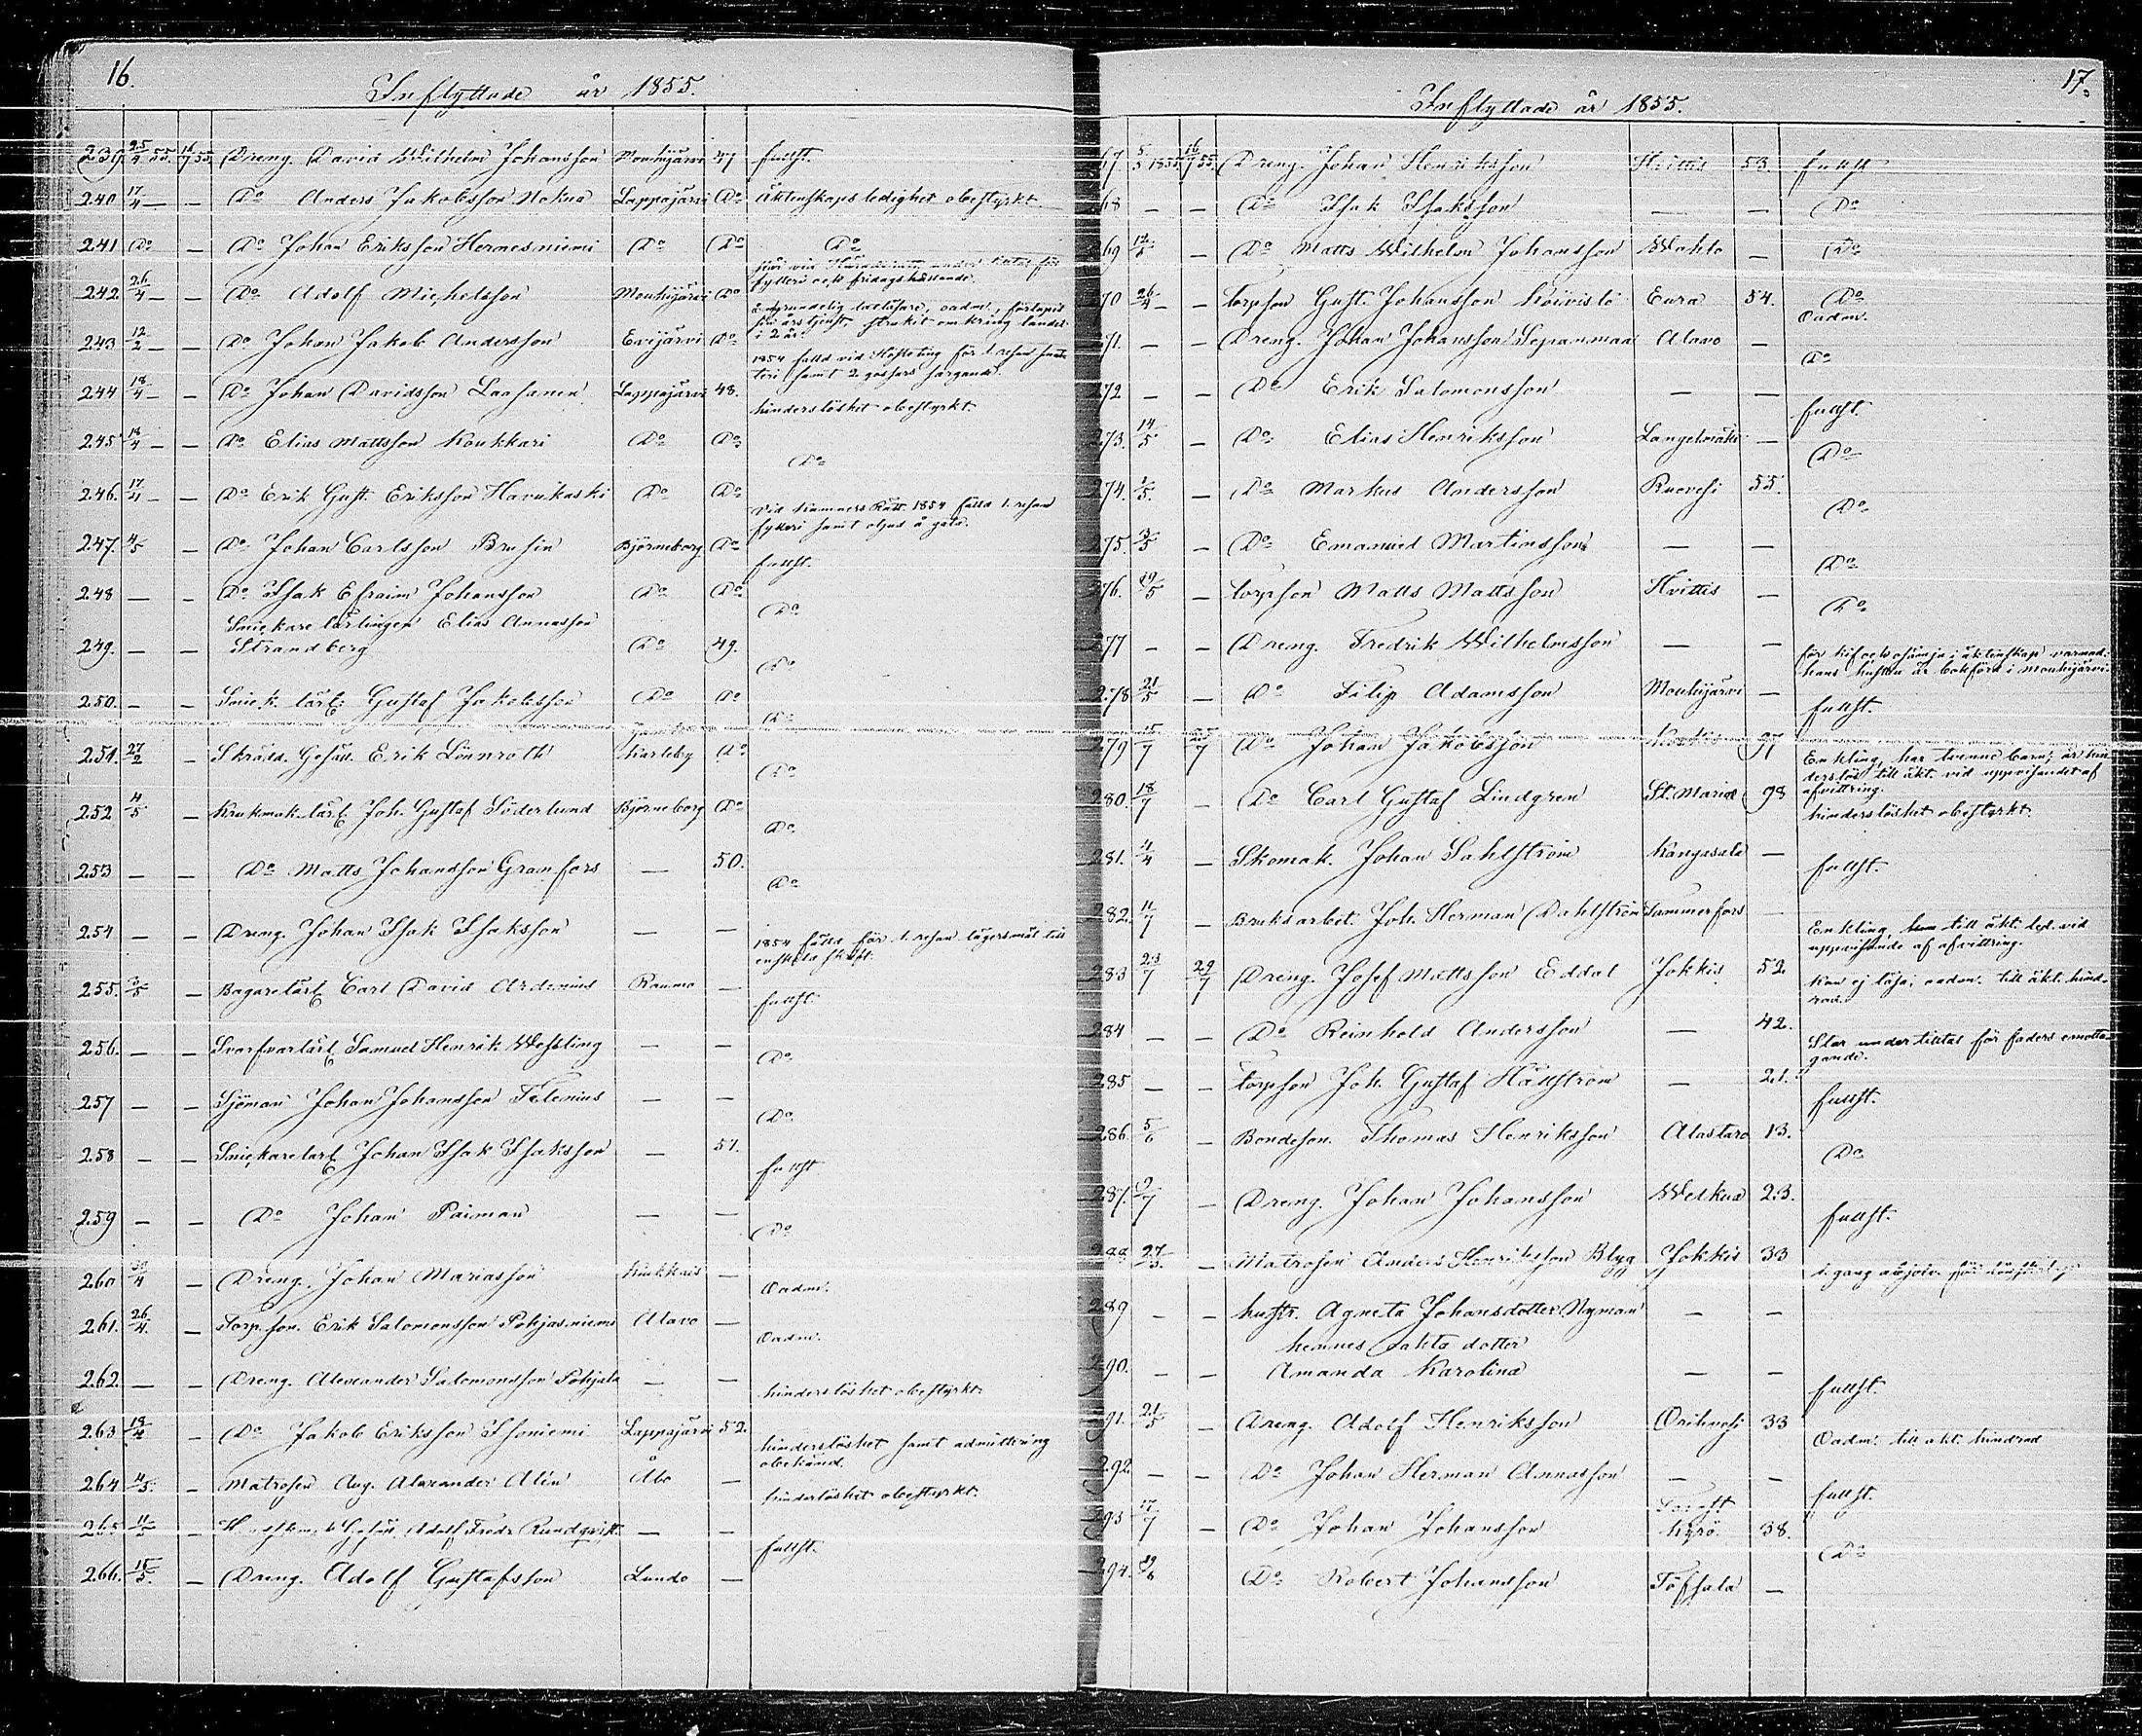 16.
Inflyttade år 1855.
239 25/4 55. 16/7 55. Dreng. David Wilhelm Johansson Mouhijärvi 47 fullst.
240 17/4 — — Do Anders Jakobsson Nokua Lappajärvi Do Äktenskaps ledighet obestyrkt
241 Do — Do Johan Eriksson Hermesniemi Do Do Do
fylleri och fridagskällande.
242. 26/4 — — Do Adolf Michelsson Mouhijärvi Do
sin års tjenst, strukit omkring landet
243 12/2 — — Do Johan Jakob Andersson Evijärvi Do i 2 år.
1854 fälld vid Häfteting för 1. resan
samt 2. gossars
244 18/4 — — Do Johan Davidsson Laasanen Lappajärvi 48. hinderslöshet obestyrkt.
245 18/4 — — Do Elias Mattsson Koukkari Do Do Do
246. 17/4 — — Do Erik Gust. Eriksson Harukaski Do Do Vid Kämners Rätt. 1854 fälld 1. resan
fylleri samt oljud å gata.
247. 4/5 — Do Johan Carlsson Brusin Björneborg Do fullst.
248 — — Do Isak Efraim Johansson Do Do Do
Snickare lärlingen Elias Annasson
249. — — Strandberg Do 49. Do
250. — — Snick. lärl. Gustaf Jakobsson Do Do Do
251. 27/2 — Skrädd. Gesäll. Erik Lönnroth Karleby Do Do
252 4/5 — Krukmak. lärl. Joh. Gustaf Söderlund Björneborg Do Do
253 — — Do Matts Johansson Granfors — 50. Do
254 — — Dreng. Johan Isak Isaksson — — 1854 fälld för 1. resan lägersmål till
enskyla skrift.
255. 5/5 — Bagarelärl. Carl David Ardenius Raumo — fullst.
256. — — Svarfvarlärl. Samuel Henrik Wessling — — Do
257 — — Sjöman Johan Johansson Filenius — — Do
258 — — Snickarelärl. Johan Isak Isaksson — 51. fullst
259 — — Do Johan Paiman — — Do
260 30/4 — Dreng. Johan Mariasson Kiukkais — Oadm.
261. 26/4. — Torp. son. Erik Salomonsson Pohjasniemi Alavo — Oadm.
262. — — Dreng. Alexander Salomonsson Pohjala — — hinderslöshet obestyrkt.
263 18/4 — Do Jakob Eriksson Isoniemi Lappajärvi 52. hinderslöshet samt admittering
obekänd.
264 4/5. — Matrosen Aug. Alexander Alén Åbo — hinderslöshet obestyrkt.
265 Gesäll. Adolf Fredr. Rundqvist — — fullst.
266. 15/5. — Dreng. Adolf Gustafsson Lundo —
17.
Inflyttade år 1855.
67. 5/5 1855 16/7 55. Dreng. Johan Henriksson Hvittis 53. fullst
68 — — Do Isak Isaksson — — Do
69 12/5 — Do Matts Wilhelm Johansson Wahto — Do
70 26/4 — — Torpson Gust. Johansson Koivisto Eura 54. Do
Oadm.
271. — — Dreng. Johan Johansson Sepänmaa Alavo — Do
272 — — Do Erik Salomonsson — — fullst.
273. 14/5 — Do Elias Henriksson Längelmäki — Do
274. 1/5. — Do Markus Andersson Ruovesi 55. Do
275 3/5 — Do Emanuel Martinsson — — Do
276. 19/5 — Torpson Matts Mattsson Hvittis — Do
277 — — Dreng. Fredrik Wilhelmsson — — för kif och osämja i äktenskap varnad.
hans hustru är bokförd i Mouhijärvi
278 21/5 — Do Filip Adamsson Mouhijärvi — fullst.
279 15/7 27/7 Do Johan Jakobsson 97 Enkling, har tvenne barn; är hin-
derslös till äkt. vid uppvisandet af
afvittring.
280. 18/7 — Do Carl Gustaf Lindgren St. Mariæ 98 hinderslöshet obestyrkt.
281. 4/4 — Skomak. Johan Sahlström Kangasala — fullst.
282. 11/7 — Bruksarbet. Joh. Herman Dahlström Tammerfors — Enkling, till äkt. led. vid
uppvisande af afvittring.
283 23/7 29/7 Dreng. Josef Mattsson Eddal Jokkis 52. Kan ej läsa; oadm. till äkt. hind-
rad.
284 — — Do Reinhold Andersson — 42. Star under tilltal för faders emotta-
gande.
285 — — Torpson Joh. Gustaf Hällström — 21. fullst.
286. 5/6 — Bondeson. Thomas Henriksson Alastaro 13. Do
287. 9/7 — Dreng. Johan Johansson Welkua 23. fullst.
288 27/5. — Matrosen Anders Henriksson Blyg Jokkis 33
289 — — hustr. Agneta Johansdotter Nyman — —
hennes oäkta dotter
290. — — Amanda Karolina — — fullst.
291. 21/5 — Dreng. Adolf Henriksson Orihvesi 33 Oadm. till äkt. hindrad
292. — — Do Johan Herman Annasson — — fullst.
293 17/7 — Do Johan Johansson Kyrö. 38. Do
294. 29/6 Do Robert Johansson Töfsala —